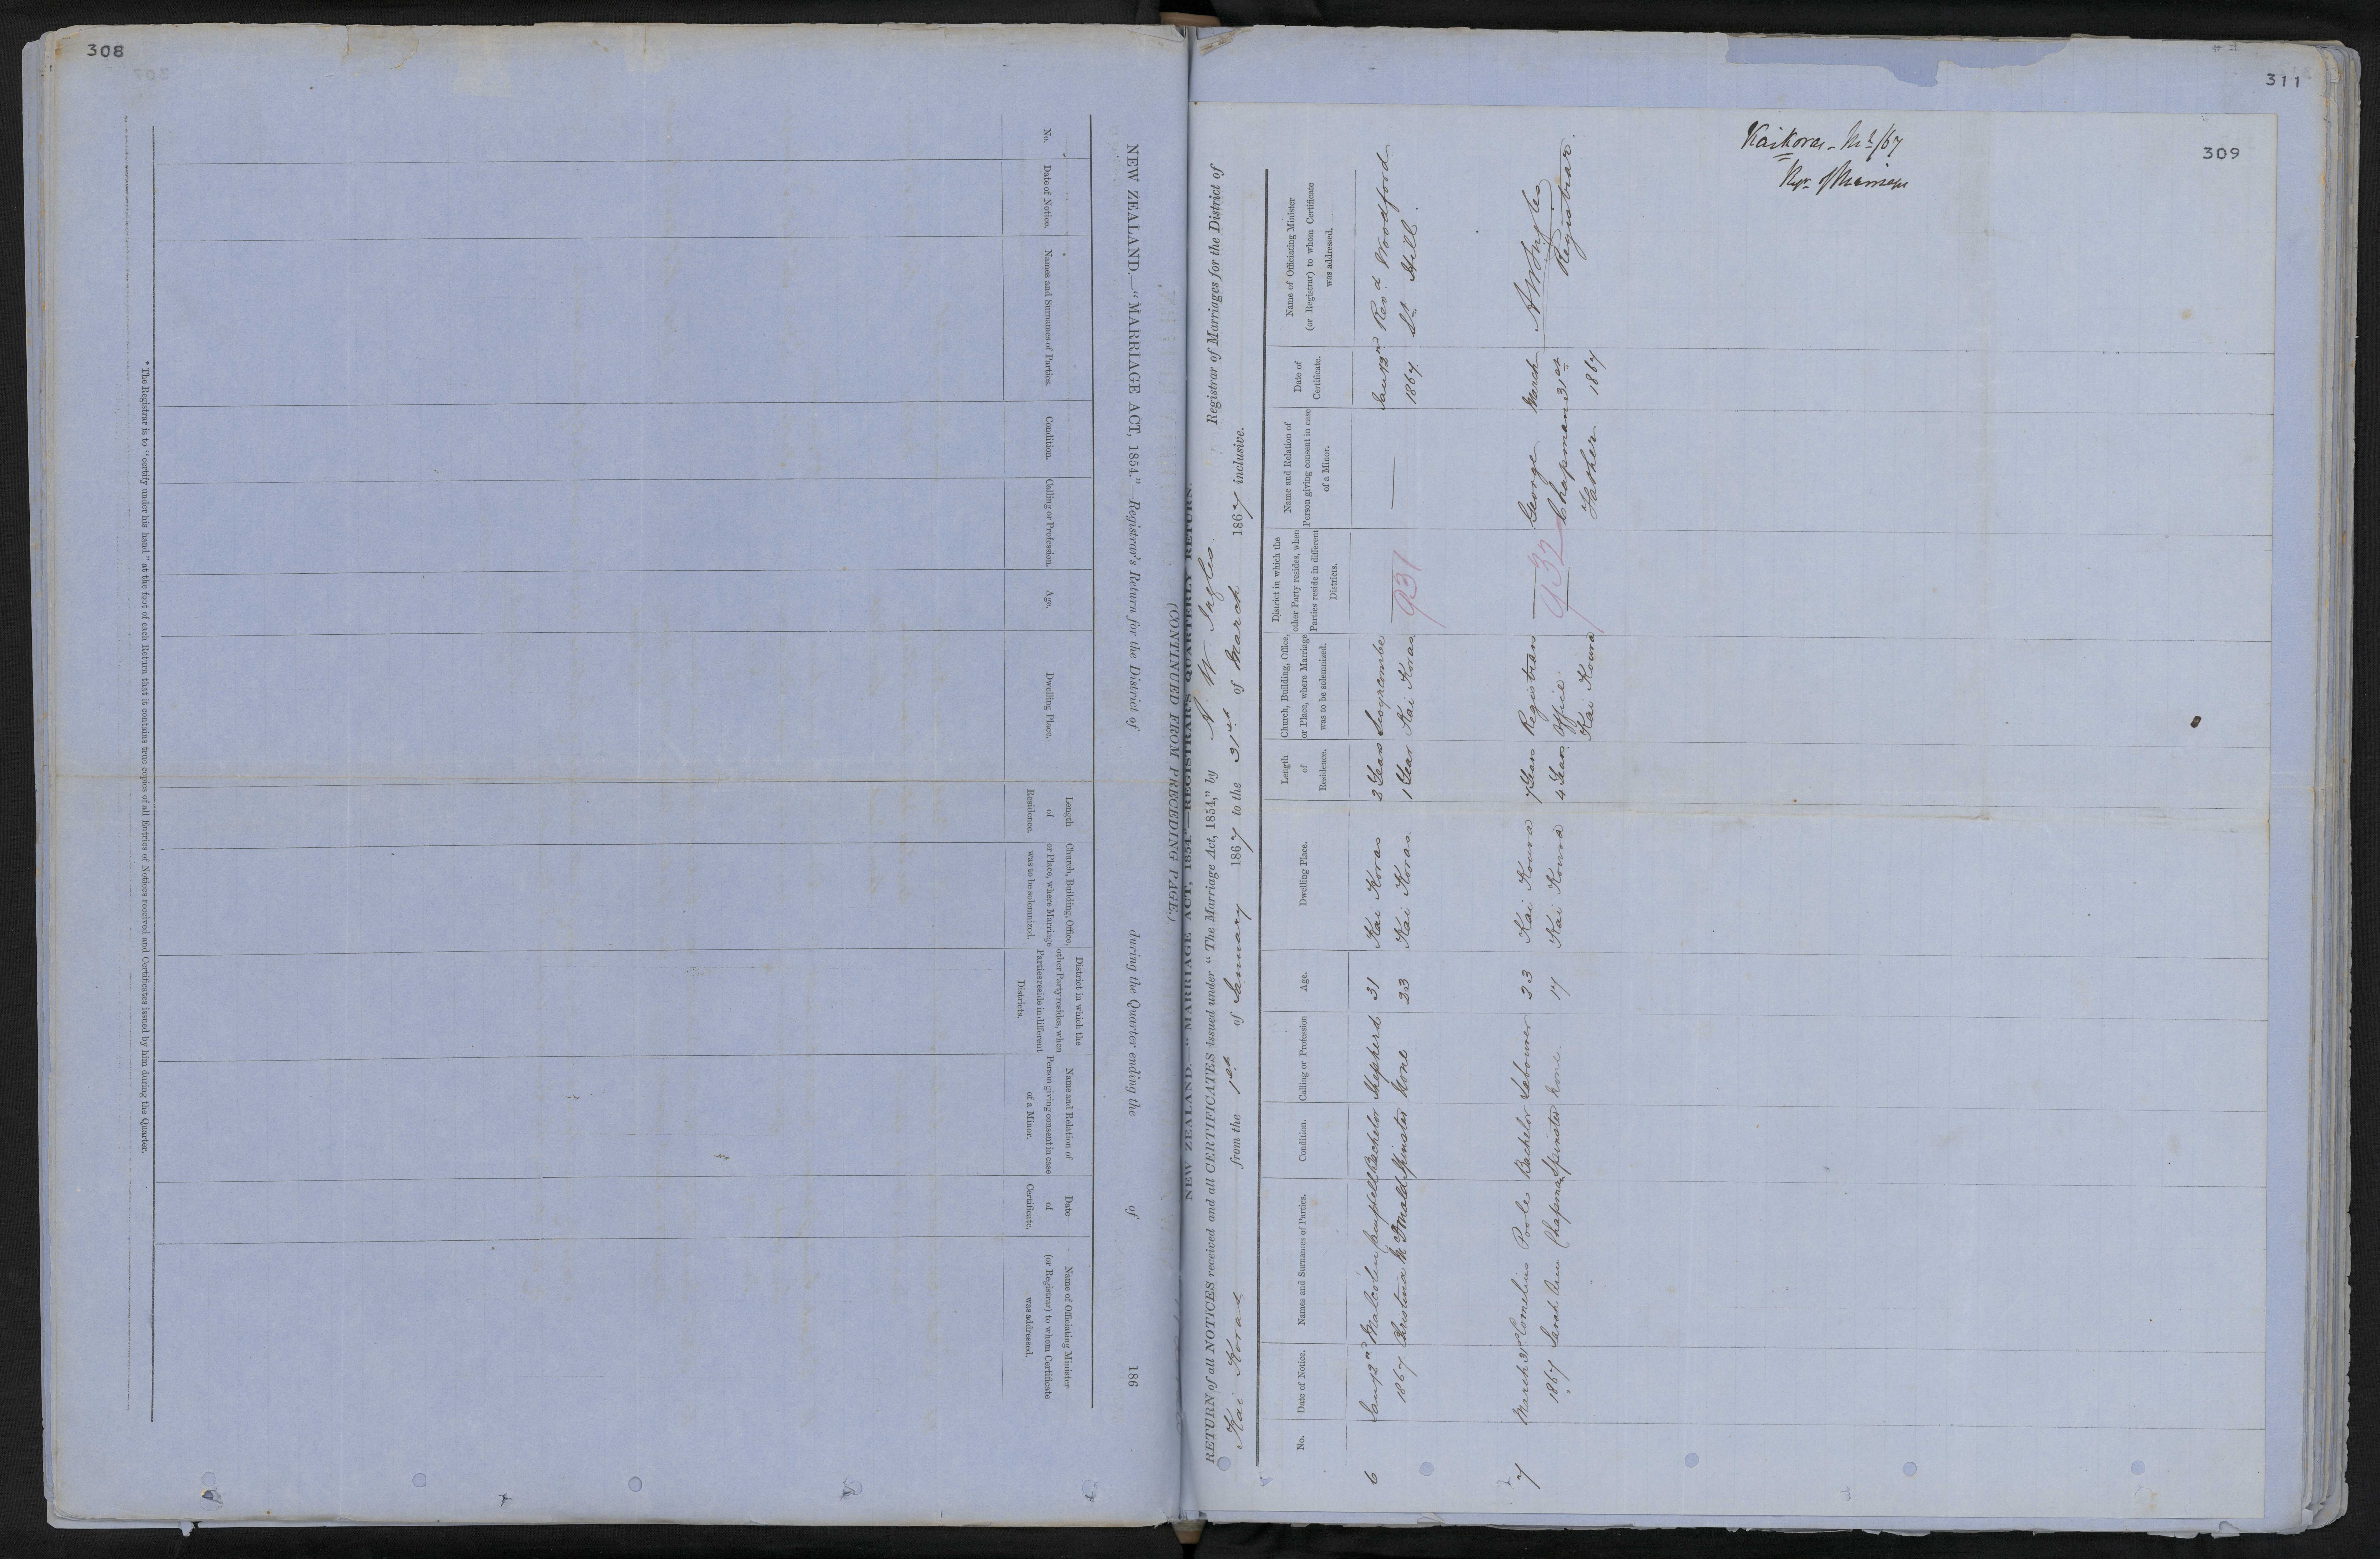 308
NEW ZEALAND.—"MARRIAGE ACT, 1854."—Registrar's Return for the District of during the Quarter ending the of 186
(CONTINUED FROM PRECEDING PAGE.)
No.
Date of Notice.
Names and Surnames of Parties.
Condition.
Calling or Profession.
Age.
Dwelling Place.
Length
of
Residence.
Church, Building, Office,
or Place, where Marriage
was to be solemnized.
District in which the
other Party resides, when
Parties reside in different
Districts.
Name and Relation of
Person giving consent in case
of a Minor.
Date
of
Certificate.
Name of Officiating Minister
(or Registrar) to whom Certificate
was addressed.
* The Registrar is to "certify under his hand" at the foot of each Return that it contains true copies of all Entries of Notices received and Certificates issued by him during the Quarter.
311
309
Kaikoras - /67
NEW ZEALAND.—"MARRIAGE ACT, 1854."—REGISTRAR'S QUARTERLY RETURN.
RETURN of all NOTICES received and all CERTIFICATES issued under "The Marriage Act, 1854," by W Ingles Registrar of Marriages for the District of
Kai Koras from the 1st of January 1867 to the 31st of March 1867 inclusive.
No.
Date of Notice.
Names and Surnames of Parties.
Condition.
Calling or Profession
Age.
Dwelling Place.
Length
of
Residence.
Church, Building, Office,
or Place, where Marriage
was to be solemnized.
District in which the
other Party resides, when
Parties reside in different
Districts.
Name and Relation of
Person giving consent in case
of a Minor.
Date of
Certificate.
Name of Officiating Minister
(or Registrar) to whom Certificate
was addressed.
6 Jany 2nd Malcolm Bachelor Shepherd 31 Kai Koras 3 Years — Jany 2nd Revd Woodford
1867 Christina McDonald Spinster None 23 Kai Koras. 1 Year Kai Koras 1867 St Hill
931
7 March 31st Cornelius Poole Bachelor Labourer 23 Kai Koura 7 Years Registrars — George March Ingles
1867 Sarah Ann Chapman Spinster None 17 Kai Koura 4 Years Office Chapman 31st Registrar
Kai Koura Father 1867
932